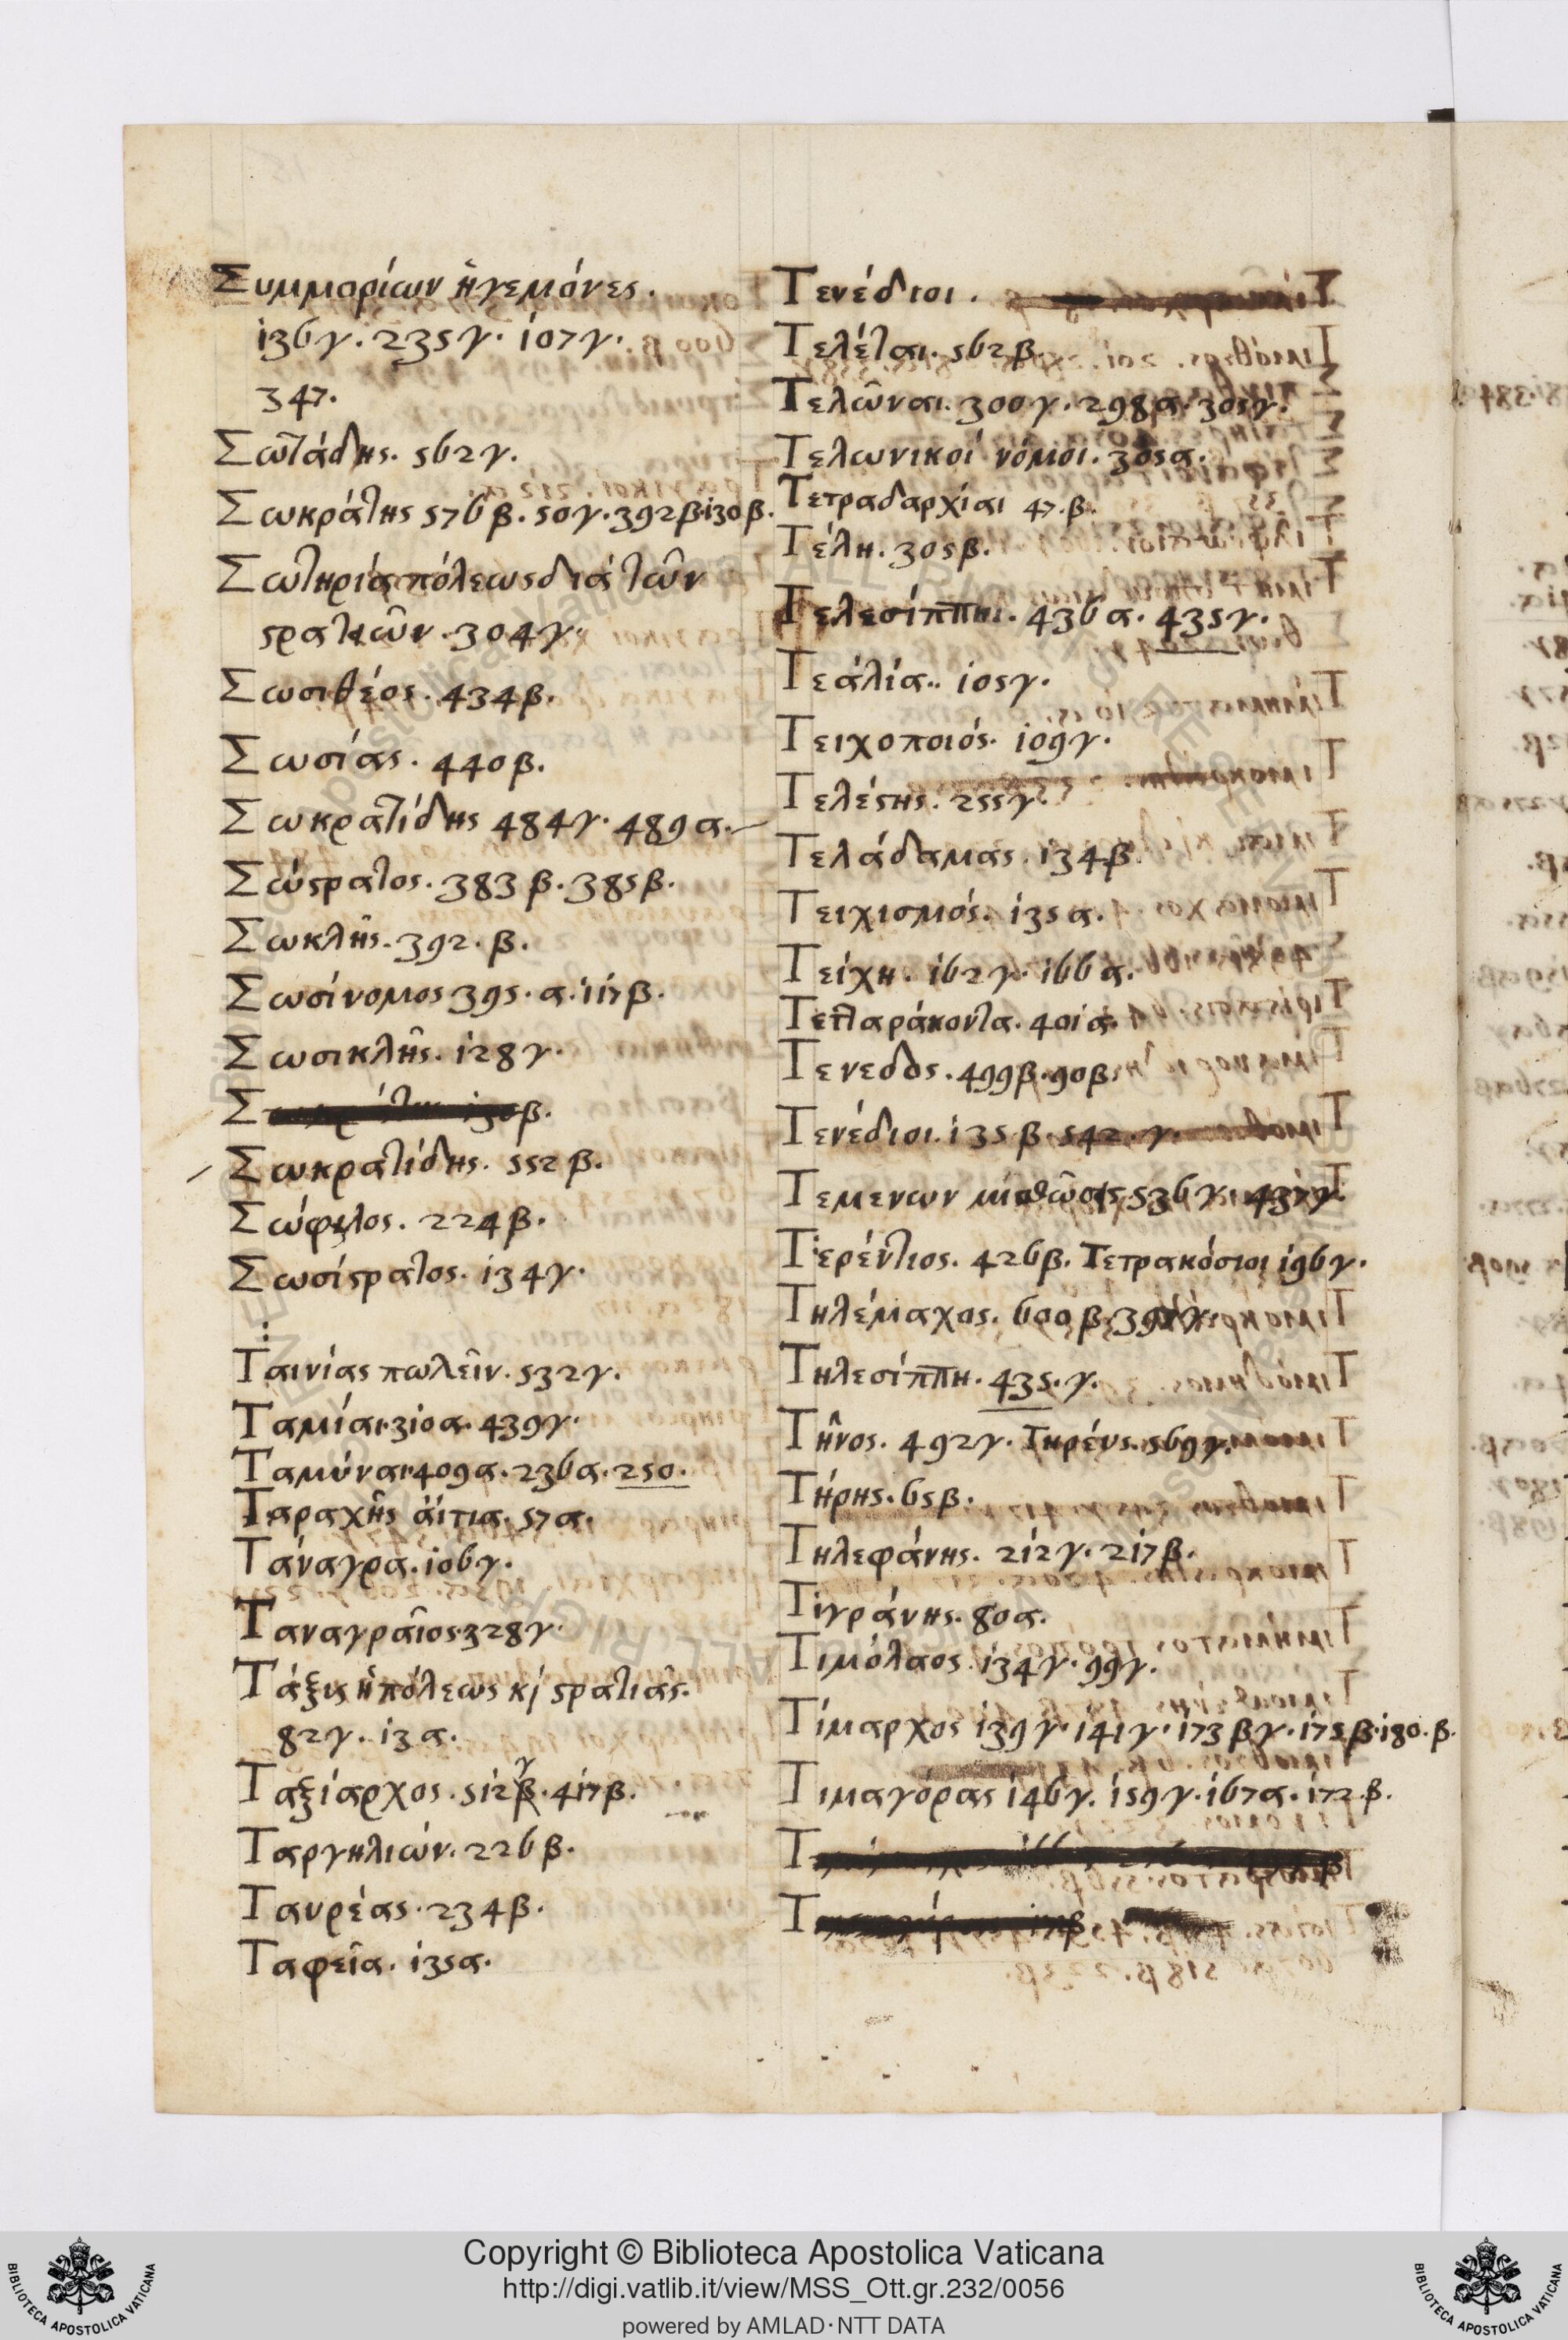 Συμμορίων ἡγεμόνες.
136γ. 235γ. 107γ.
347.
Σωτάδης. 562γ.
Σωκράτης 576β. 50γ. 392β. 130β.
Σωτηρία πόλεως διὰ τῶν
ϛρατιῶν. 304γ.
Σωσιθέος. 434β.
Σωσίας. 440β.
Σωκρατίδης 484γ. 489α.
Σώϛρατος. 383β. 385β.
Σωκλῆς. 392. β.
Σωσίνομος 395. α. 117β.
Σωσικλῆς. 128γ.
Σ β.
Σωκρατίδης. 552β.
Σώφιλος. 224β.
Σωσίϛρατος. 134γ.
Ταινίας πωλεῖν. 532γ.
Ταμίαι. 310α. 439γ.
Ταμύναι. 409α. 236α. 250.
Ταραχῆς ἀίτια. 57α.
Τάναγρα. 106γ.
Ταναγραῖος. 328γ.
Τάξις ἡ πόλεως κỳ ϛρατιᾶς.
82γ. 13α.
Ταξίαρχος. 512β. 417β.
Ταργηλιών. 226β.
Ταυρέας. 234β.
Ταφεῖα. 135α.
Τενέδιοι.
Τελέται. 562β.
Τελῶναι. 300γ. 298α. 305γ.
Τελωνικοί νόμοι. 305α.
Τετραδαρχίαι 47. β.
Τέλη. 305β.
Τελεσίππη. 436α. 435γ.
Τεάλία. 105γ.
Τειχοποιός. 109γ.
Τελέϛης. 255γ.
Τελάδαμας. 134β.
Τειχισμός. 135α.
Τείχη. 162γ. 166α.
Τετταράκοντα. 401α.
Τενεδος. 499β. 90β.
Τενέδιοι. 135β. 542. γ.
Τεμενων μίσθωσις. 536γ. 437γ.
Τερέντιος. 426β. Τετρακόσιοι 196γ.
Τηλέμαχος. 600β. 397γ.
Τηλεσίππη. 435. γ.
Τῆνος. 492γ. Τηρέυς. 569γ.
Τήρης. 65β.
Τηλεφάνης. 212γ. 217β.
Τιγράνης. 80α.
Τιμόλαος. 134γ. 99γ.
Τίμαρχος 139γ. 141γ. 173βγ. 175β. 180. β.
Τιμαγόρας 146γ. 159γ. 167α. 172. β.
Τ
Τ
Copyright © Biblioteca Apostolica Vaticana
http://digi.vatlib.it/view/MSS_Ott.gr.232/0056
powered by AMLAD·NTT DATA